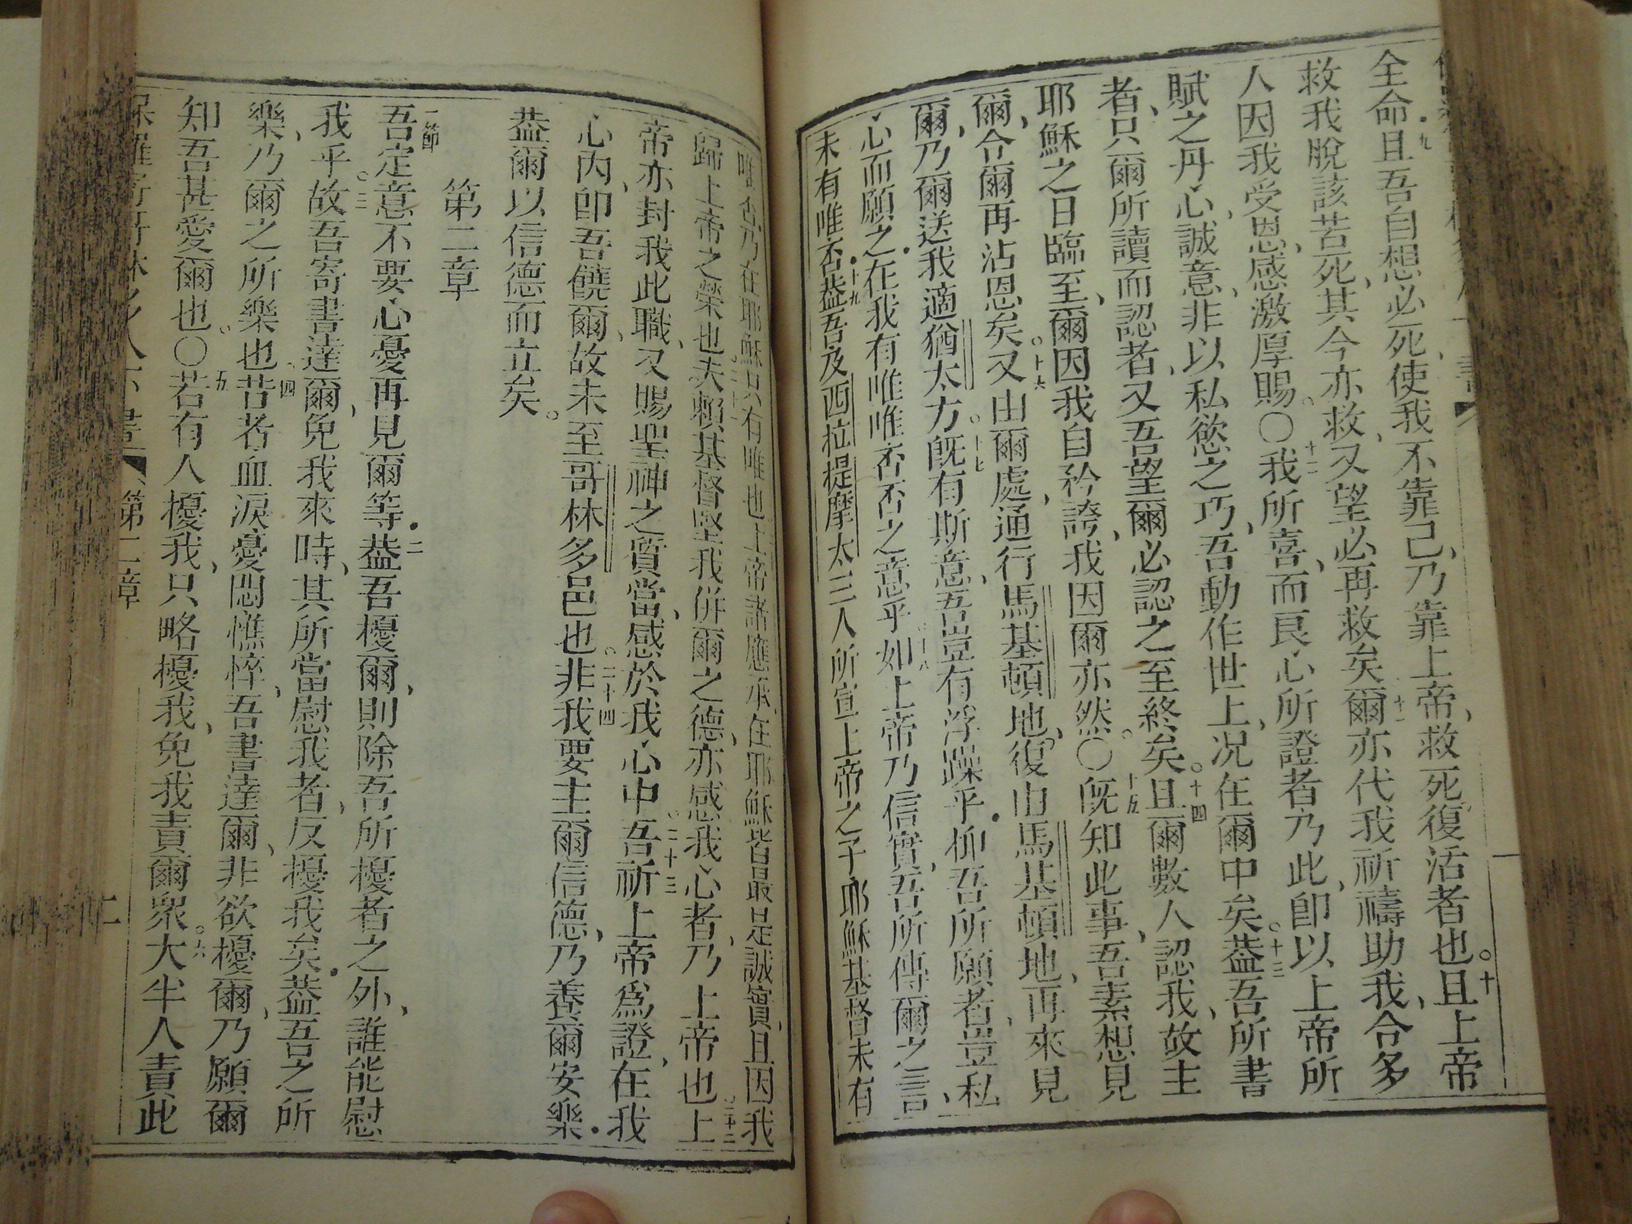 全命且吾自想必死使我不靠己乃靠上帝救死復活者也且上帝
九
十
救我脫該苦死其今亦救又望必再救矣爾亦代我祈禱助我令多
十一
人因我受恩感激厚賜○我所喜而艮心所證者乃此卽以上帝所
十二
賦之丹心誠意非以私慾之巧吾動作世上况在爾中矣葢吾所書
十三
者只爾所讀而認者又吾望爾必認之至終矣且爾數人認我故主
十四
耶穌之日臨至爾因我自矜誇我因爾亦然○旣知此事吾素想見
十五
爾令爾再沾恩矣又由爾處通行馬基頓地復由馬基頓地再來見
十六
爾乃爾送我適猶太方旣有斯意吾豈有浮躁乎抑吾所願者豈私
十七
心而願之在我有唯唯否否之意乎如上帝乃信實吾所傳爾之言
十八
未有唯否葢吾及西拉提摩太三人所宣上帝之子耶穌基督未有
十九
唯否乃在耶穌只有唯也上帝諸應承在耶穌皆最是誠實且因我
歸上帝之榮也夫賴基督堅我併爾之德亦感我心者乃上帝也上
二十一
二十二
帝亦封我此職又賜聖神之質當感於我心中吾祈上帝爲證在我
二十三
心內卽吾饒爾故未至哥林多邑也非我要主爾信德乃養爾安樂
二十四
葢爾以信德而立矣
第二章
一節
吾定意不要心憂再見爾等葢吾擾爾則除吾所擾者之外誰能慰
二
我乎故吾寄書達爾免我來時其所當慰我者反擾我矣葢吾之所
三
樂乃爾之所樂也昔者血淚憂悶憔悴吾書達爾非欲擾爾乃願爾
四
知吾甚愛爾也○若有人擾我只略擾我免我責爾衆大半人責此
五
六
第二章
二